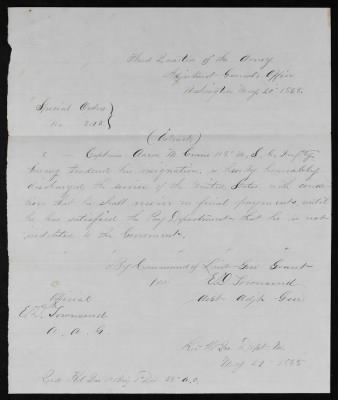 Head Quarters of the Army
Adjutant General's Office
Washington May 20 1865
Special Orders
No
(Extract)
Captain Aaron M. Crane U. S. C. Inf'ty
having tendered his resignation, is hereby honorably
discharged the service of the United States, with condi-
tion that he shall receive no final payments until
he has satisfied the Pay Department that he is not
indebted to the Government.
By Command of Lieut Gen Grant
E D Townsend
Asst Adjt Gen
Official
E D Townsend
A. A. G.
Dept
May 1865
25" A.C.